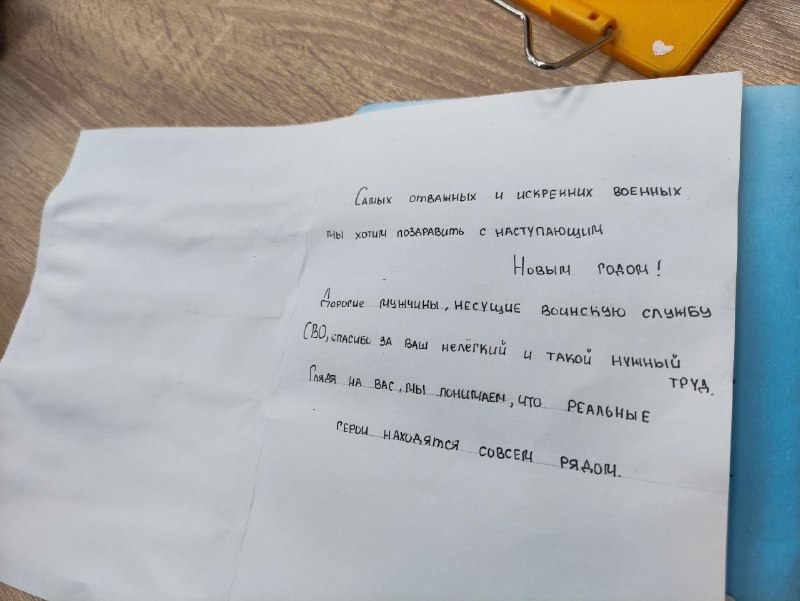 Самых отважных и искренних военных
мы хотим поздравить с наступающим
Новым годом!
Дорогие мужчины, несущие воинскую службу
СВО, спасибо за ваш нелёгкий и такой нужный
труд.
Глядя на вас, мы понимаем, что реальные
герои находятся совсем рядом.